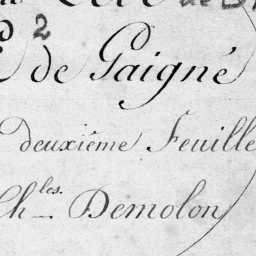 2
de Gaigné
deuxième Feuille
Ch.les Demolon